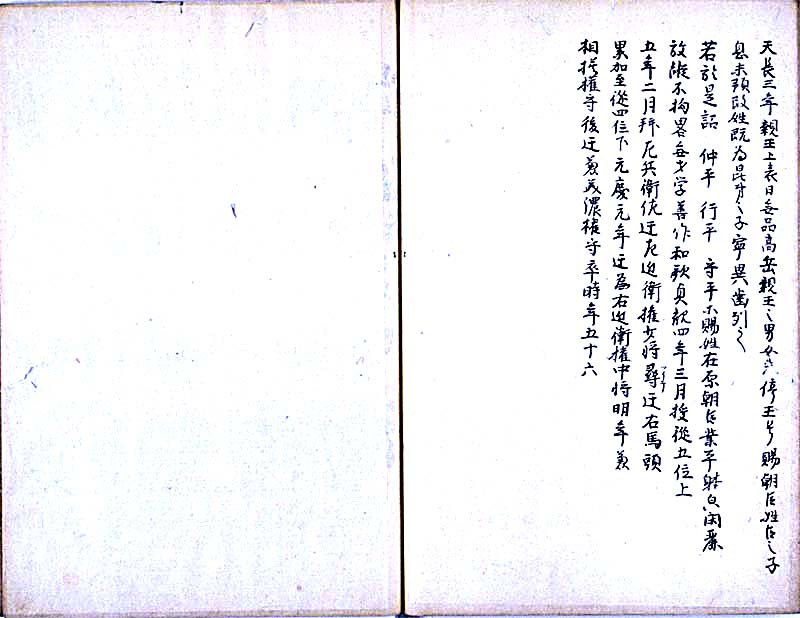 天長三年親王上表曰無品高岳親王之男女先停王号賜朝臣姓臣之子
息未預改姓既為昆弟之子寧異歯列之
若於是詔 仲平 行平 守平等賜姓在原朝臣業平躰貌閑麗
放縦不拘略無才学善作和歌貞観四年三月授従五位上
五年二月拝左兵衛佐迁左近衛権少将尋迁右馬頭
累加至従四位下元慶元年迁為右近衛権中将明年兼
相摸権守後迁兼美濃権守卒時年五十六